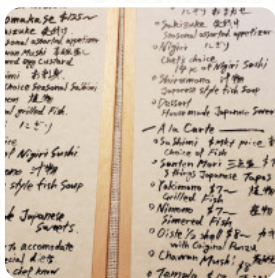 omakase $125~
izuke 突付け
seasonal assorted appetizer
Mushi
egg Custard
Choice Seasonal Sashimi
grilled Fish.
にぎり
Nigiri Sushi
汁物
style fish Soup
Japanese
Sweets.
to accomodate
cial diets
chef know
にぎり おまかせ
Sakizuke
seasonal assorted appetizer
Nigiri にぎり
Chef's choice
of Nigiri Sushi
Shirumono 汁物
Japanese style fish Soup
Dessert
House made Japanese Sweet
A la Carte
Sashimi $mkt price
Choice of Fish
Santen Mori 三点盛 $
3 things Japanese Tapas
Yakimono $7~
Grilled Fish
Nimono $7~
Simered Fish
Oister/Shell $8~
with Original Punzu
Chawan Mushi $8
Tempura